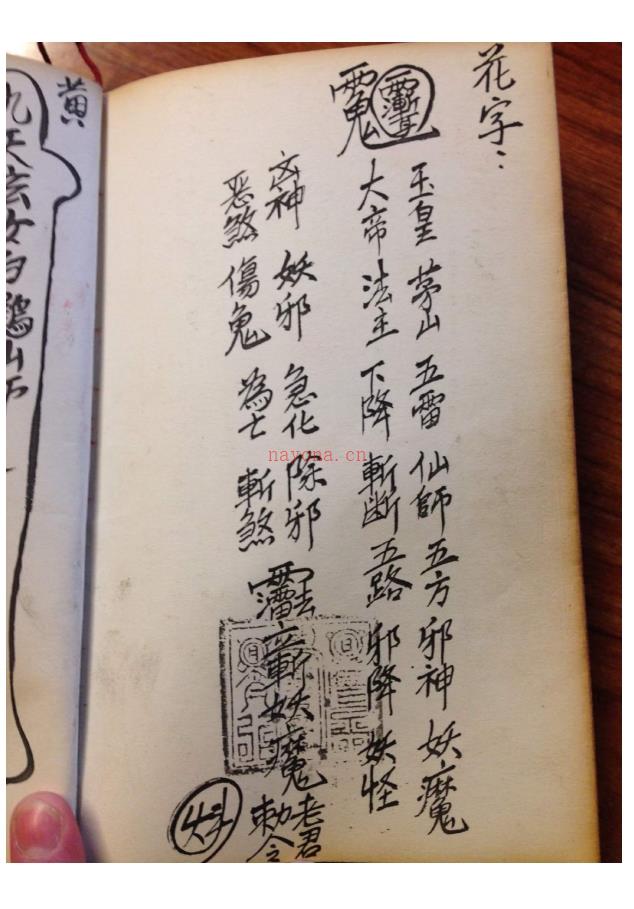 花字：
玉皇 茅山 五雷 仙師 五方 邪神 妖魔
大帝 法主 下降 斬断 五路 邪降 妖怪
凶神 妖邪 急化 除邪
恶煞 傷鬼 為 斬煞
斬妖魔
老君
勅令
黄
九天玄女白鶴山
nayona.cn